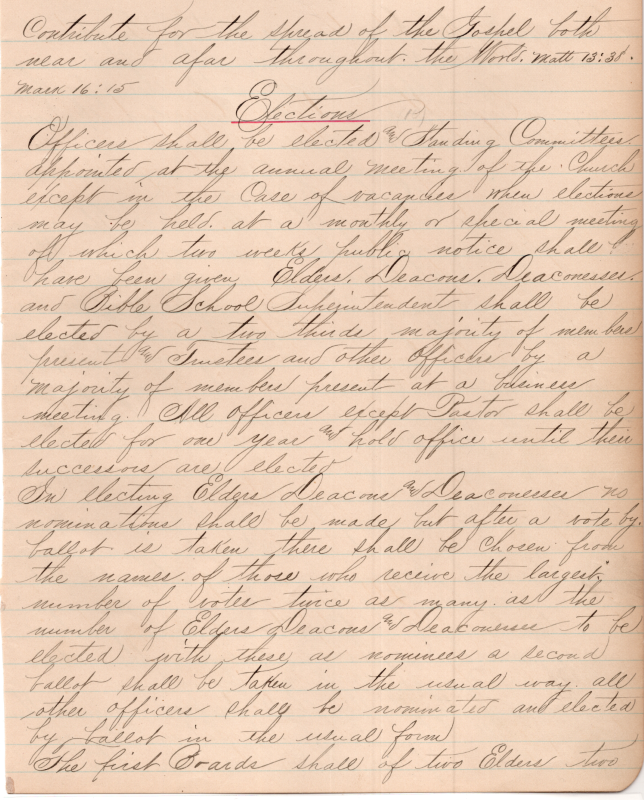 Contribute for the spread of the Gospel both
near and afar throughout the World. Matt 13:38.
Mark 16:15
Elections
Officers shall be elected and Standing Committees.
appointed at the annual meeting of the Church
except in the Case of vacancies when elections
may be held at a monthly or special meeting
of which two weeks public notice shall
have been given Elders. Deacons. Deaconesses.
and Bible School Superintendent shall be
elected by a two thirds majority of members
present and Trustees and other officers by a
majority of members present at a business
meeting. All officers except Pastor shall be
elected for one year and hold office until their
successors are elected
In electing Elders Deacons and Deaconesses no
nominations shall be made but after a vote by
ballot is taken there shall be chosen from
the names of those who receive the largest
number of votes twice as many as the
number of Elders Deacons and Deaconesses to be
elected with these as nominees a second
ballot shall be taken in the usual way. all
other officers shall be nominated an elected
by ballot in the usual form
The first Boards shall of two Elders two